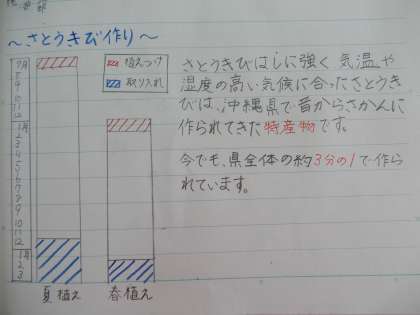 ～さとうきび作り～
植えつけ
取り入れ
7月
8
9
10
11
12
1月
2
3
4
5
6
7
8
9
10
11
12
1月
2
3
夏植え
春植え
さとうきびは に強く 気温や
湿度の高い気候に合ったさとうき
びは、沖縄県で昔からさかんに
作られてきた特産物です。
今でも、県全体の約3分の1で作ら
れています。